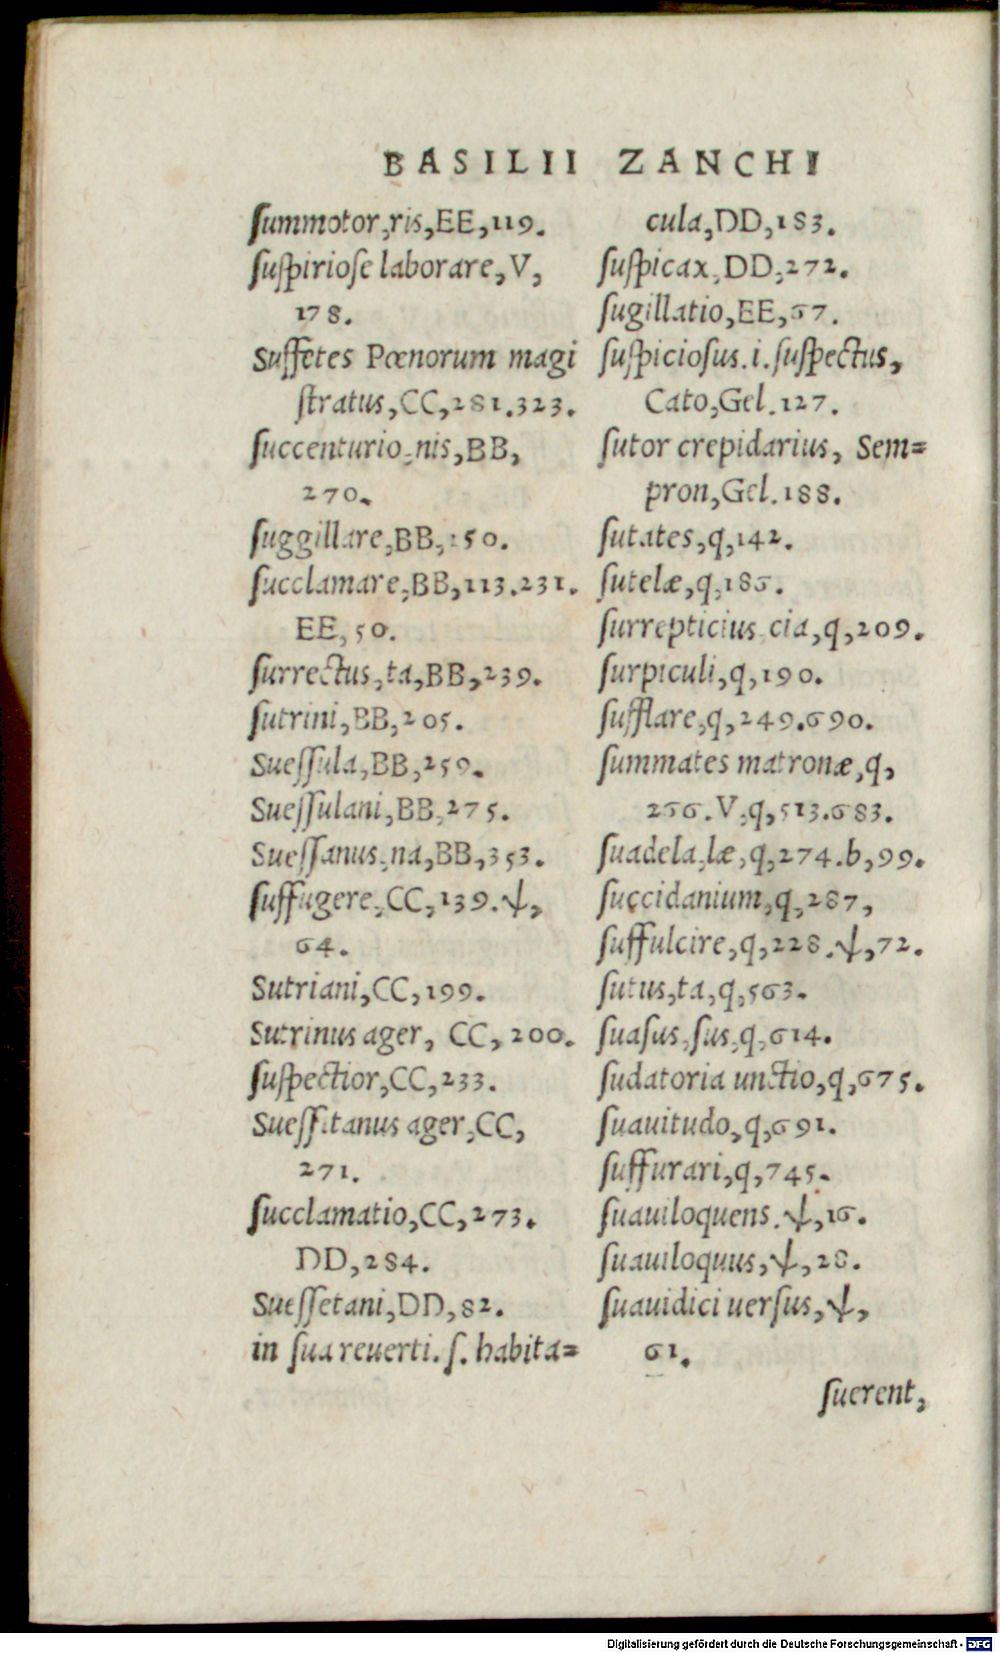 BASILII ZANCHI
ſummotor,ris,EE,119.
ſuſpirioſe laborare,V,
178.
Suffetes Pœnorum magi
ſtratus,CC,281.323.
ſuccenturio,nis,BB,
270.
ſuggillare,BB,150.
ſucclamare,BB,113.231.
EE,50.
ſurrectus,ta,BB,239.
ſutrini,BB,205.
Sueſſula,BB,259.
Sueſſulani,BB,275.
Sueſſanus,na,BB,353.
ſuffugere,CC,139.ψ,
64.
Sutriani,CC,199.
Sutrinus ager, CC,200.
ſuſpectior,CC,233.
Sueſſitanus ager,CC,
271.
ſucclamatio,CC,273.
DD,284.
Sueſſetani,DD,82.
in ſua reuerti. ſ. habita=
cula,DD,183.
ſuſpicax,DD,272.
ſugillatio,EE,67.
ſuſpicioſus.i.ſuſpectus,
Cato,Gel.127.
ſutor crepidarius, Sem=
pron,Gel.188.
ſutates,q,142.
ſutelæ,q,186.
ſurrepticius cia,q,209.
ſurpiculi,q,190.
ſufflare,q,249.690.
ſummates matronæ,q,
256.V,q,513.683.
ſuadela,læ,q,274.b,99.
ſuccidanium,q,287,
ſuffulcire,q,228.ψ,72.
ſutus,ta,q,563.
ſuaſus,ſus,q,614.
ſudatoria unctio,q,675.
ſuauitudo,q,691.
ſuffurari,q,745.
ſuauiloquens.ψ,16.
ſuauiloquus,ψ,28.
ſuauidici uerſus,ψ,
61.
ſuerent,
Digitalisierung gefördert durch die Deutsche Forschungsgemeinschaft - DFG